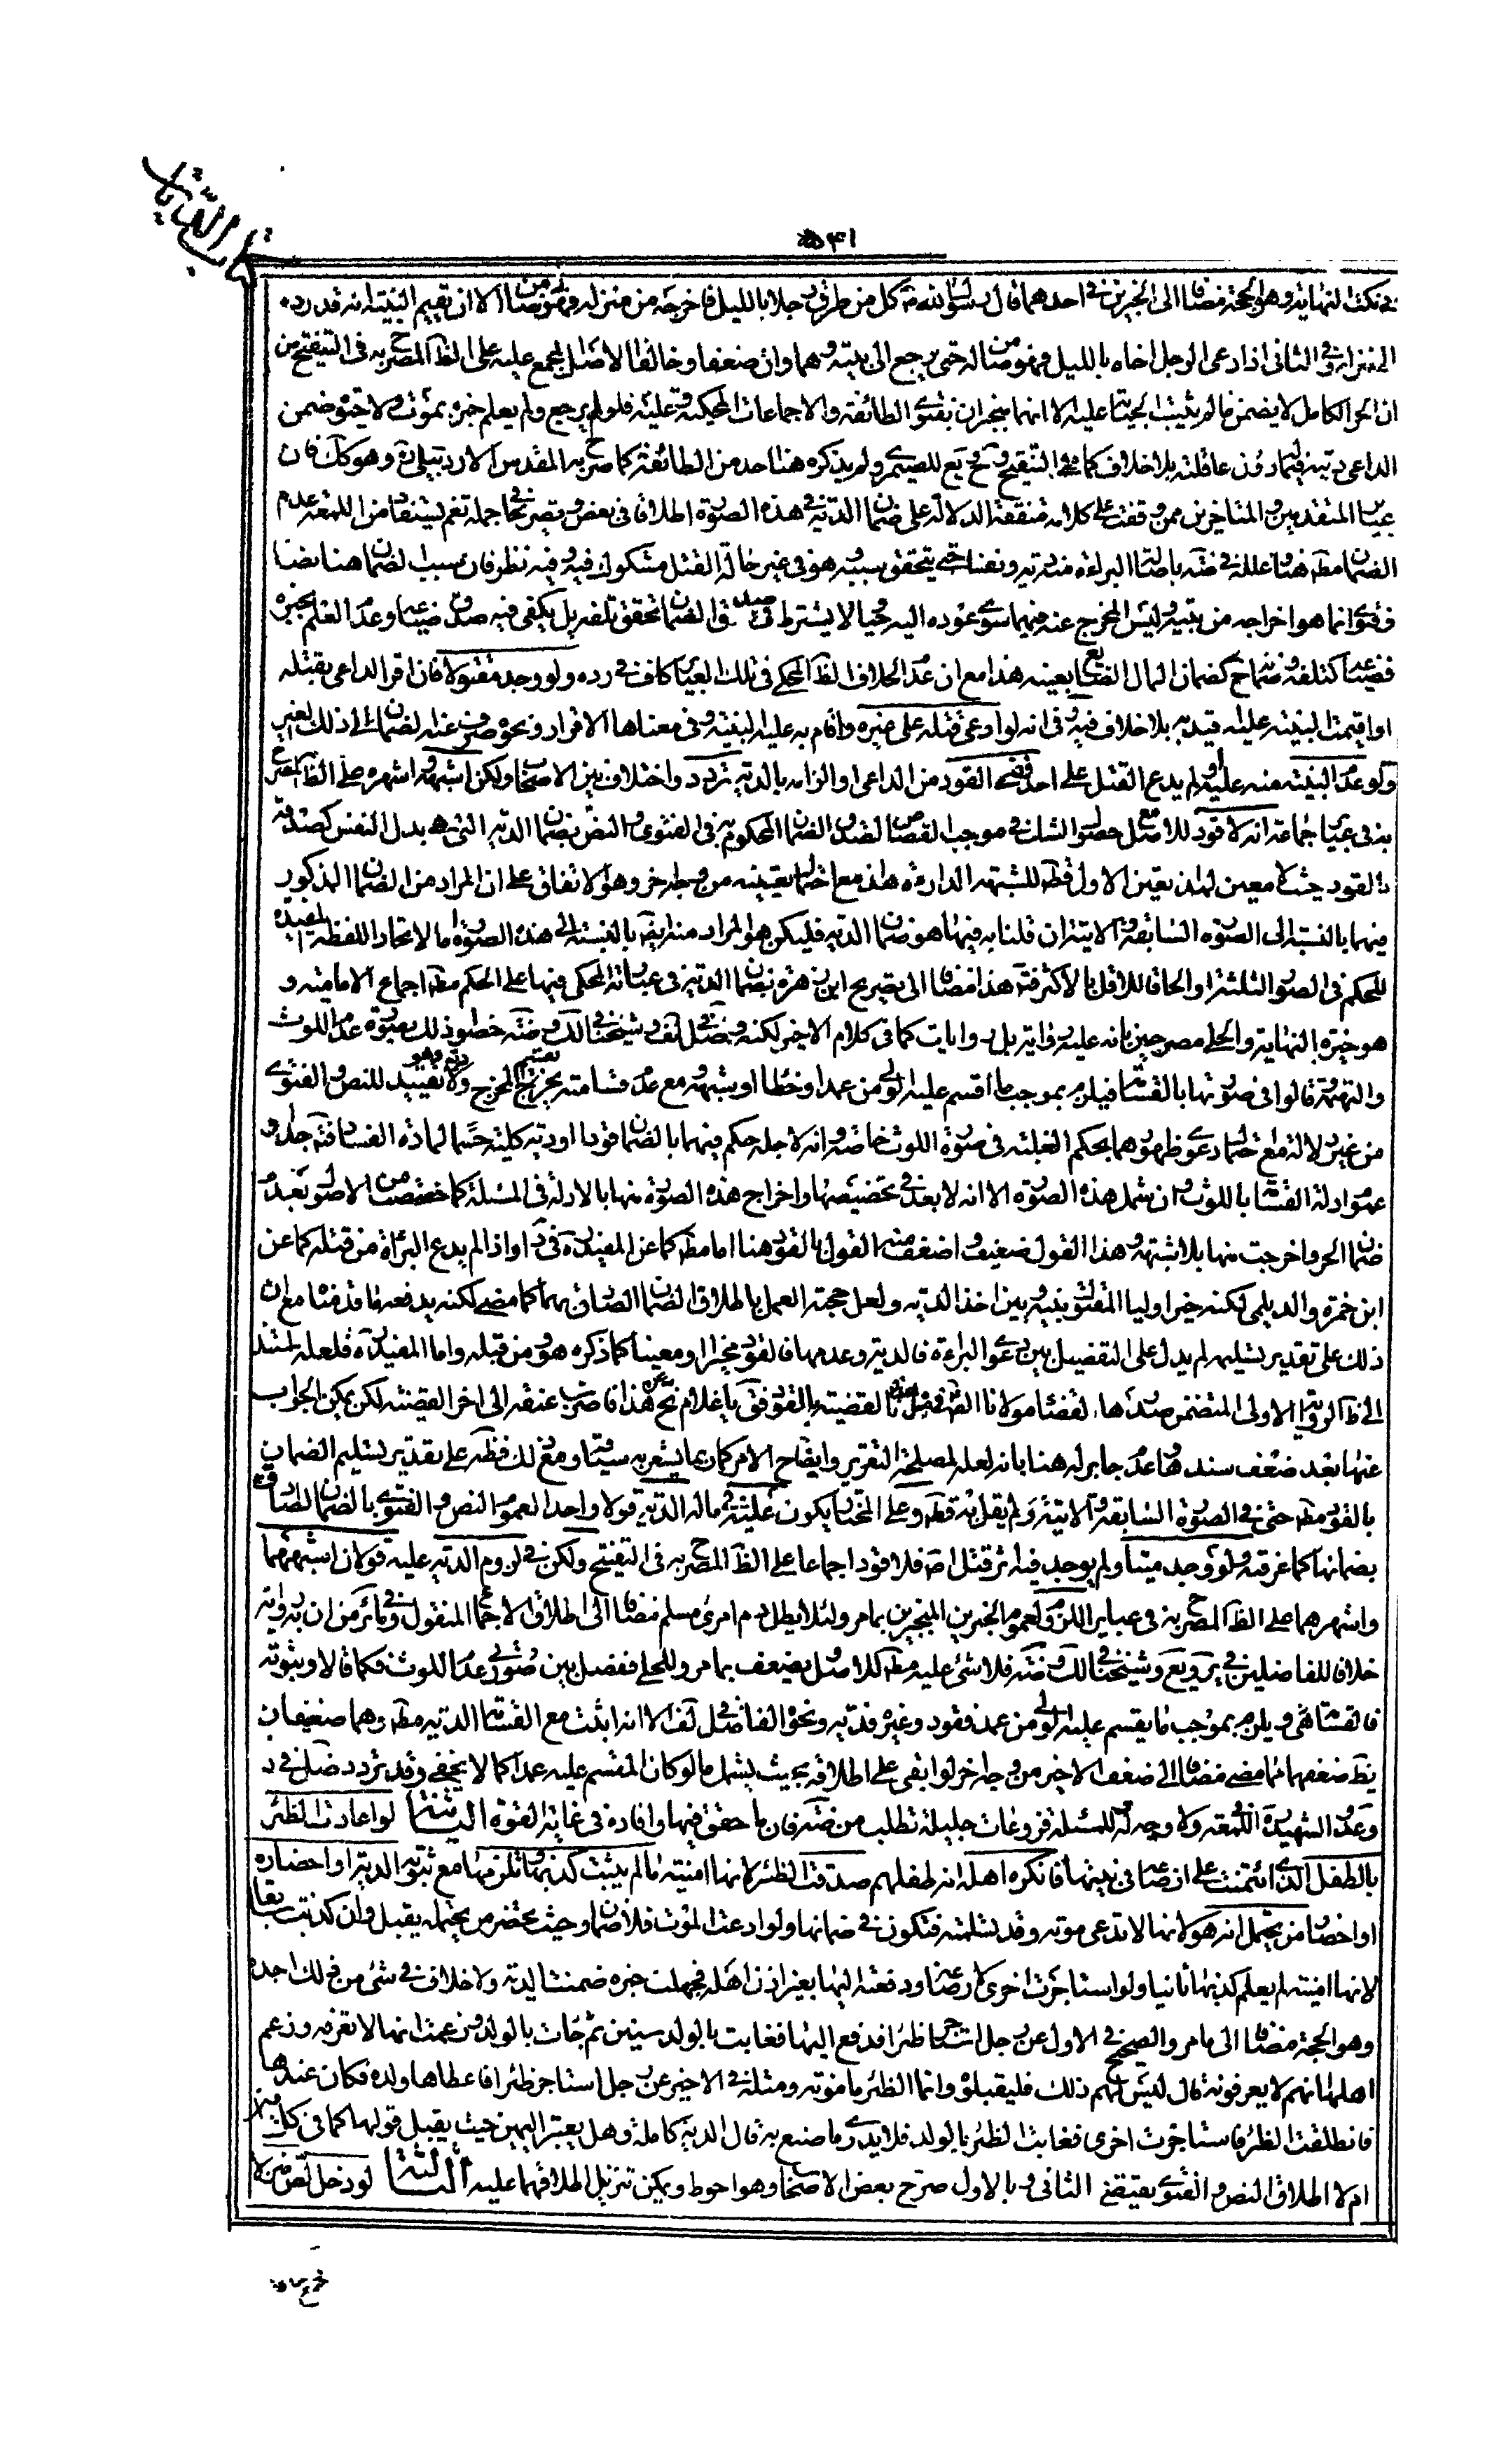 ۵۴۱
كتاب الديات
في نكت النهاية وهو الحجة مضافا الى الخبرين في احدهما قال رسول الله ص كل من طرق رجلا بالليل فاخرجه من منزله فهو له ضامن الا ان يقيم البينة انه قد رده
الى منزله وفي الثاني اذا دعى الرجل اخاه بالليل فهو ضامن له حتى يرجع الى بيته وهما وان ضعفا وخالفا الاصل المجمع عليه على الظ المصرح به في التنقيح من
ان الحر الكامل لا يضمن ما لم يثبت الجناية عليه الا انهما منجبران بفتوى الطائفة والاجماعات المحكية وعليه فلو لم يرجع ولم يعلم خبره بموت ولا حيوة ضمن
الداعي ديته في ماله دون عاقلته بلا خلاف كما في التنقيح و يع للصيمري ولم يذكره هنا احد من الطائفة كما صرح به المقدس الاردبيلي ره وهو كك فان
عبارات المتقدمين والمتاخرين ممن وقفت على كلامه متفقة الدلالة على ضمان الدية في هذه الصورة اطلاقا في بعض وتصريحا في جملة نعم يستفاد من اللمعة عدم
الضمان مط هنا وعلله في ضه باصالة البراءة من دية ونفسا حتى يتحقق سببه وهو في غير حالة القتل مشكوك فيه وفيه نظر فان سبب الضمان هنا نصا
وفتوى انما هو اخراجه من بيته وليس المخرج عنه فيهما سوى عوده اليه حيا لا يشترط في صدق الضمان تحقق تلفه بل يكفى فيه صدق ضياعه وعدم العلم بخبره
فضياعه كتلفه وضمانه ح كضمان المال الضايع بعينه هذا مع ان عدم الخلاف الظ المحكي في تلك العبارة كاف في رده ولو وجد مقتولا فان اقر الداعي بقتله
او اقيمت البينة عليه قيد به بلا خلاف فيه وفي انه لو ادعى قتله على غيره واقام به عليه البينة وفي معناها الاقرار ونحوه صرف عنه الضمان الى ذلك الغير
ولو عدم البينة منه عليه او لم يدع القتل على احد ففي القود من الداعي او الزامه بالدية تردد واختلاف بين الاصحاب ولكن اشبهه واشهره على الظ المصرح
به في عبارة جماعة انه لا قود للاصل مع حصول الشك في موجب القصاص لصدق الضمان المحكوم به في الفتوى والنص بضمان الدية التي هي بدل النفس كصدقه
بالقود حيث لا معين لهذا يعين الاول فظه للشبهة الدارءة هذا مع احتمال تعيينه من وجه اخر وهو الاتفاق على ان المراد من الضمان المذكور
فيهما بالنسبة الى الصورة السابقة والاتية ان قلنا به فيها هو ضمان الدية فليكن هو المراد منه ايضا بالنسبة الى هذه الصورة اما لاتحاد اللفظة المفيدة
للحكم في الصور الثلثة او الحاقا للاقل بالاكثر فت هذا مضافا الى تصريح ابن زهرة بضمان الدية في عبارته المحكي فيها على الحكم مط اجماع الامامية و
هو خيرة النهاية والحلي مصرحين بانه عليه رواية بل روايات كما في كلام الاخير لكنه وفضل لف وشيخنا في لك و ضه خصوا ذلك بصورة عدم اللوث
والتهمة وقالوا في صورتها بالقسامة فيلزم بموجب ما اقسم عليه الولي من عمد او خطا او شبهه ومع عدم قسامته يجرى المخرج دية وهو تقييد للنص والفتوى
من غير دلالة مع احتمال دعوى ظهورهما بحكم الغلبة في صورة اللوث خاصة وانه لاجله حكم فيهما بالضمان قودا او دية كلية حسما لمادة الفساد فت جدا و
عموم ادلة القسامة باللوث وان شمل هذه الصورة الا انه لا بعد في تخصيصها واخراج هذه الصورة منها بالادلة في المسئلة كما خصصت من الاصول بعدم
ضمان الحر واخرجت منها بلا شبهة وهذا القول ضعيف واضعف منه القول بالقود هنا اما مط كما عن المفيد ره في د او اذا لم يدع البراءة من قتله كما عن
ابن حمزة والديلمي لكنه خير اولياء المقتول بينه وبين اخذ الدية ولعل حجته العمل باطلاق الضمان الصادق بهما كما مضى لكنه يدفعه ما قدمناه مع ان
ذلك على تقدير تسليمه لم يدل على التفصيل بين دعوى البراءة فالدية وعدمها فالقود مخيرا او معينا كما ذكره هو ومن قبله واما المفيد ره فلعله استند
الى ظ الرواية الاولى المتضمن صدرها لقضاء مولانا الصادق ع في مثل القضية بالقود ففي يا غلام نح هذا فاضرب عنقه الى اخر القضية لكن يمكن الجواب
عنها بعد ضعف سندها وعدم جابر له هنا بانه لعله لمصلحة التقرير وايضاح الامر كما ربما يشعر به سياقها ومع ذلك فظهر على تقدير تسليم الضمان
بالقود مط حتى في الصورة السابقة والاتية ولم يقل به قطه وعلى المختار يكون عليه في ماله الدية قولا واحدا لعموم النص والفتوى بالضمان الصادق
بضمانها كما عرفته ولو وجد ميتا ولم يوجد فيه اثر قتل اصلا فلا قود اجماعا على الظ المصرح به في التنقيح ولكن في لزوم الدية عليه قولان اشبههما
واشهرهما على الظ المصرح به في عبارة اللزوم لعموم الخبرين المنجبرين بما مر ولئلا يطل دم امرئ مسلم مضافا الى اطلاق الاجماع المنقول وفي ما مر من ان به رواية
خلافا للفاضلين في ير و يع وشيخنا في لك و ضه فلا شئ عليه مط للاصل ويضعف بما مر وللحلي ففصل بين صورتي عدم اللوث فكما قالا وثبوته
فالقسامة هي ويلزم بموجب ما يقسم عليه الولي من عمد فقود وغيره فدية ونحوه الفاضل في لف الا انه اثبت مع القسامة الدية مط وهما ضعيفان
يظ ضعفهما مما مضى مضافا الى ضعف الاخير من وجه اخر لو ابقى على اطلاقه بحيث يشمل ما لو كان المقسم عليه عمدا كما لا يخفى وقد تردد فضل في د
وعد الشهيد في اللمعة ولا وجه له ثم للمسئلة فروعات جليلة تطلب من ضه فان ما حقق فيها وافاده في غاية القوة الثانية لو اعادت الظئر
بالطفل الذي ائتمنت على ارضاعه في بيتها فانكره اهله انه طفلهم صدقت الظئر لانها امينة ما لم يثبت كذبها فيلزمها مع ثبوته الدية او احضاره
او احضار من يحتمل انه هو لانها لا تدعى موته وقد تسلمته فتكون في ضمانها ولو ادعت الموت فلا ضمان وحيث تحضر من يحتمله يقبل وان كذبت سابقا
لانها امينة لم يعلم كذبها ثانيا ولو استاجرت اخرى لارضاعه ودفعته اليها بغير اذن اهله فجهلت خبره ضمنت الدية ولا خلاف في شئ من ذلك اجده
وهو الحجة مضافا الى ما مر والصحيح في الاول عن رجل استاجر ظئرا فدفع اليها فغابت بالولد سنين ثم جاءت بالولد وزعمت انها لا تعرفه وزعم
اهلها انهم لا يعرفونه قال ليس لهم ذلك فليقبلوه وانما الظئر مامونة ومثله في الاخير عن رجل استاجر ظئرا فاعطاها ولده فكان عندها
فانطلقت الظئر فاستاجرت اخرى فغابت الظئر بالولد فلا يدرى ما صنع به قال الدية كاملة وهل يعتبر اليمين حيث يقبل قولها كما في كل امين
ام لا اطلاق النص والفتوى يقتضى الثاني وبالاول صرح بعض الاصحاب وهو احوط ويمكن تنزيل اطلاقهما عليه الثالثة لو دخل لص